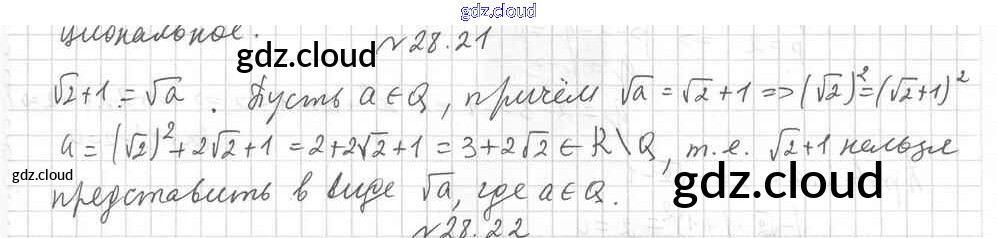 gdz.cloud
циональное.
№28.21
gdz.cloud
√2+1=√a. Пусть a∈Q, причём √a=√2+1=>(√2)²=(√2+1)²
a=(√2)²+2√2+1=2+2√2+1=3+2√2∈R\Q, т.е. √2+1 нельзя
gdz.cloud
представить в виде √a, где a∈Q.
gdz.cloud
№28.22